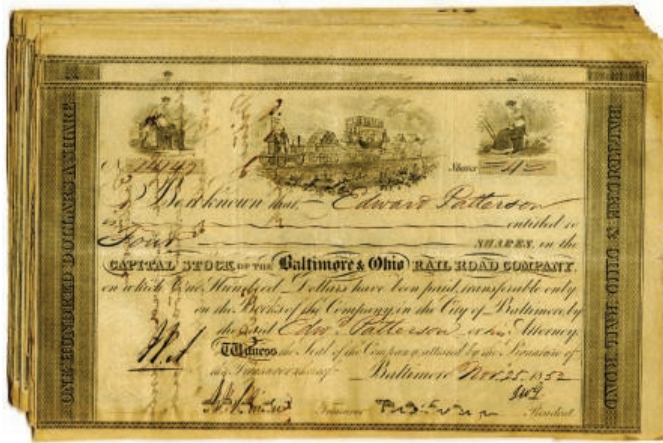 ONE HUNDRED DOLLARS A SHARE
BALTIMORE & OHIO RAIL ROAD
Shares 4
Be it known that Edward Patterson
entitled to
Four SHARES, in the
CAPITAL STOCK OF THE Baltimore & Ohio RAIL ROAD COMPANY,
on which One Hundred Dollars have been paid, transferable only
on the Books of the Company, in the City of Baltimore by
the said Edwd. Patterson or his Attorney.
Witness the Seal of the Company attested by the Signature of
Treasurer Baltimore Nov. 25. 1852
Treasurer President